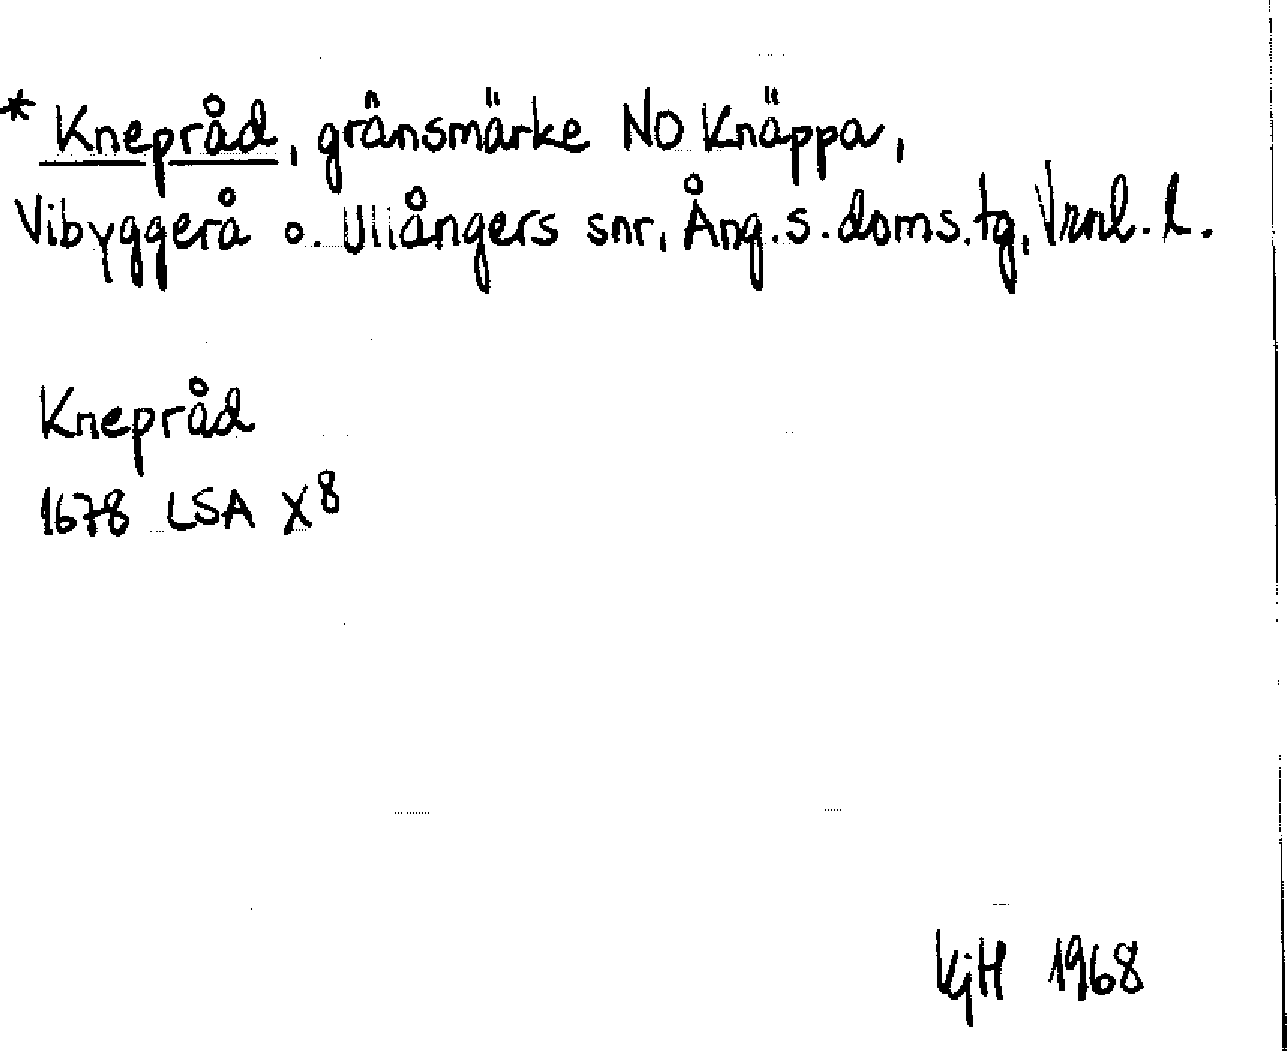 * Knepråd, gränsmärke NO Knäppa,
Vibyggerå o. Ullångers snr, Ång.s.doms.tg, Vrnl. l.
Knepråd
1678 LSA X8
KjH 1968